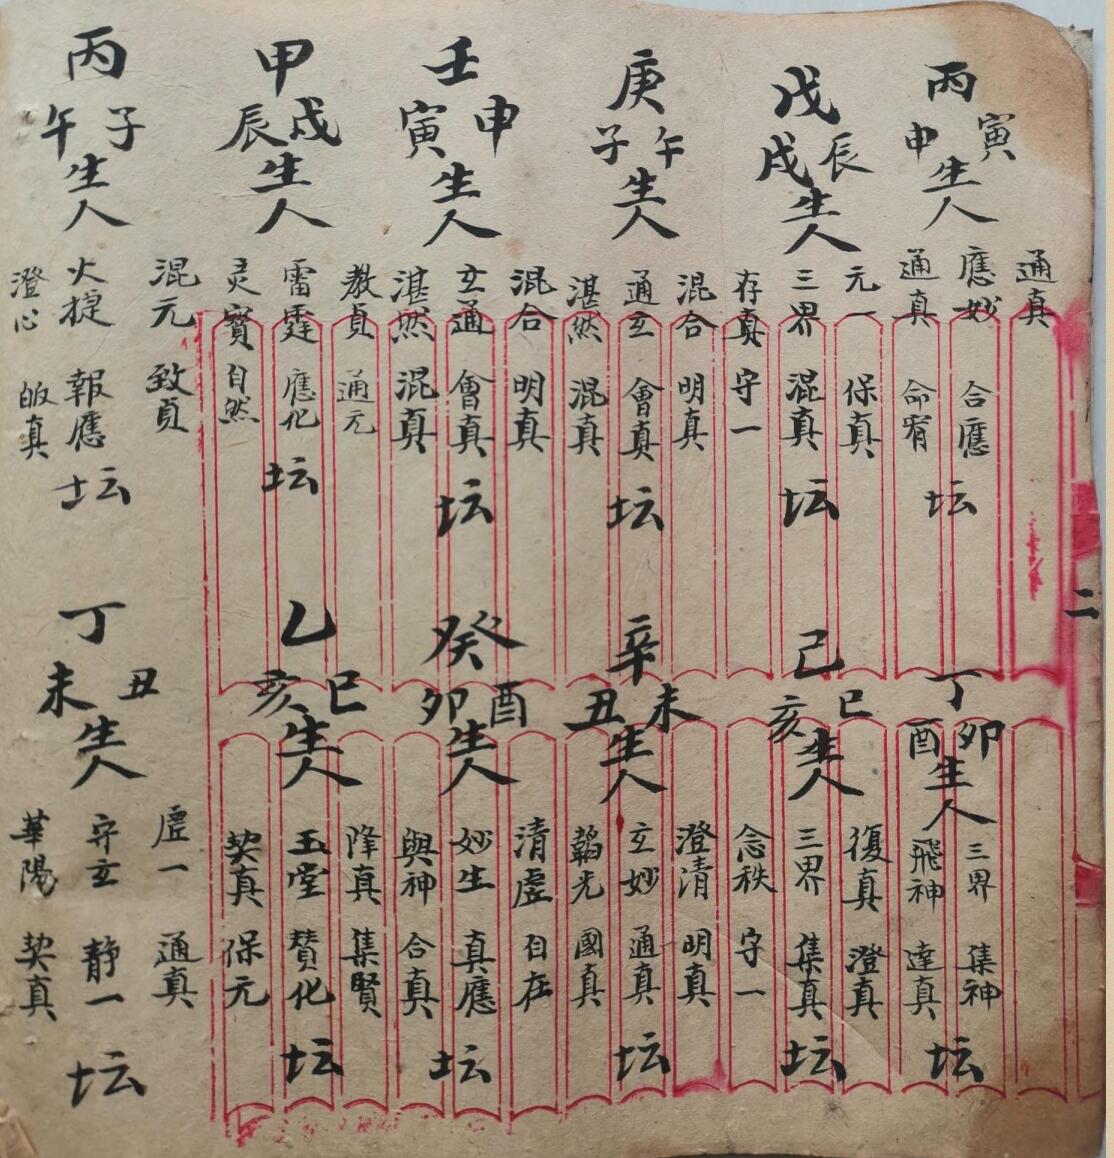 丙寅申生人
通真
應妙 合應
通真 命宥
坛
戊辰戌生人
元一 保真
三界 混真
存真 守一
坛
庚午子生人
混合 明真
通玄 會真
湛然 混真
坛
壬申寅生人
混合 明真
玄通 會真
湛然 混真
坛
甲戌辰生人
教貞 通元
雷霆 應化
灵寳 自然
坛
丙子午生人
混元 致貞
火提 報應
澄心 皈真
坛
丁卯酉生人
三界 集神
飛神 達真
坛
己巳亥生人
復真 澄真
三界 集真
念秩 守一
坛
辛未丑生人
澄清 明真
玄妙 通真
韜光 國真
坛
癸酉卯生人
清虛 自在
妙生 真應
與神 合真
坛
乙巳亥生人
降真 集賢
玉堂 賛化
契真 保元
坛
丁丑未生人
虛一 通真
守玄 静一
華陽 契真
坛
二